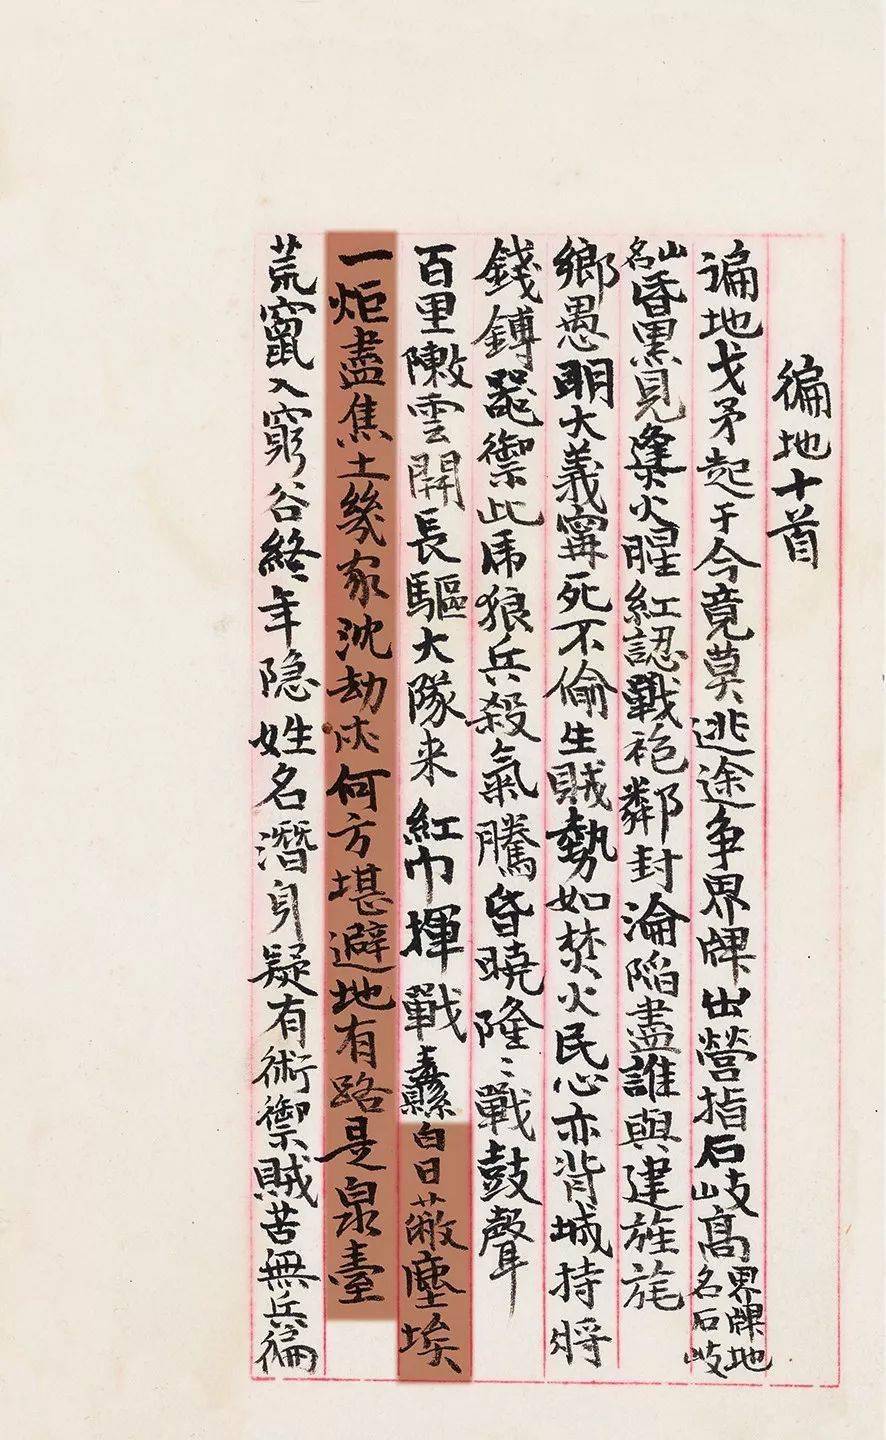 徧地十首
遍地戈矛起于今竟莫逃途争界牌出營指石岐高界牌地名石岐
山名昏黒見㷭火腥紅認戰袍鄰封淪陷盡誰與建旌旄
鄉愚明大義甯死不偷生賊勢如焚火民心亦背城持將
錢鎛器禦此虎狼兵殺氣騰昏曉隆〻戰鼓聲
百里敶雲開長驅大隊来紅巾揮戰纛白日蔽塵埃
一炬盡焦土幾家沈劫灰何方堪避地有路是泉臺
荒竄入窮谷終年隐姓名潛身疑有術禦賊苦無兵徧